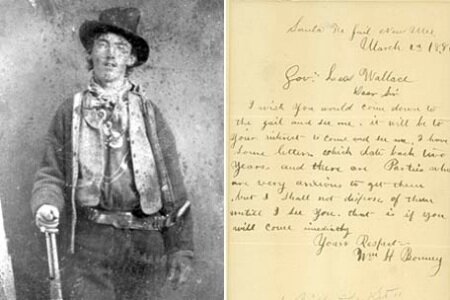 Santa Fe Jail New Mex
March 2d 188
Gov. Lew Wallace
Dear Sir
I wish you would come down to
the jail and see me. it will be to
your interest to come and see me. I have
Some letters which date back two
years, and there are Parties who
are very anxious to get them
but I shall not dispose of them
untill I see you. that is if you
will come imediatly
Yours Respect
Wm H Bonney